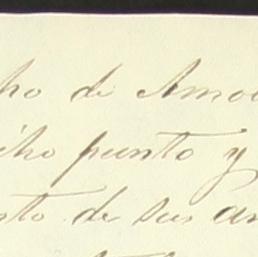 ho de Amo
cho punto y
nto de sus an